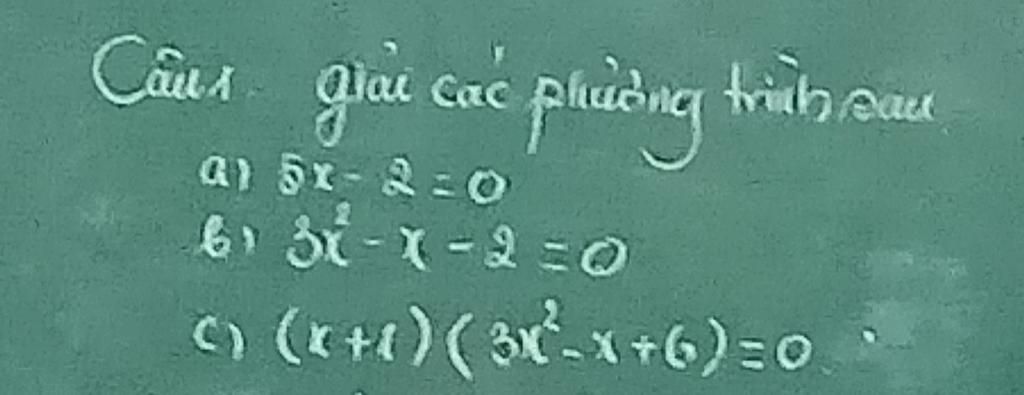 Câu 1 giải các phương trình sau
a) 5x - 2 = 0
b) 3x² - x - 2 = 0
c) (x+1)(3x² - x + 6) = 0